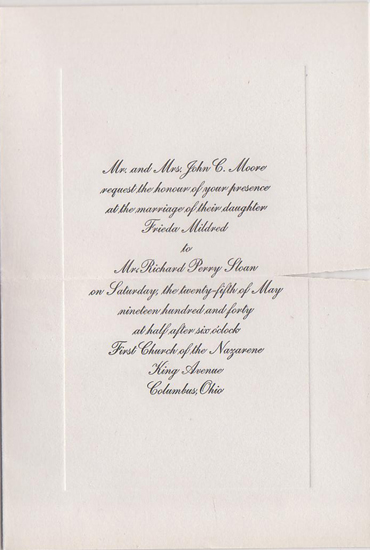 Mr. and Mrs. John C. Moore
request the honour of your presence
at the marriage of their daughter
Frieda Mildred
to
Mr. Richard Perry Sloan
on Saturday, the twenty-fifth of May
nineteen hundred and forty
at half after six o'clock
First Church of the Nazarene
King Avenue
Columbus, Ohio